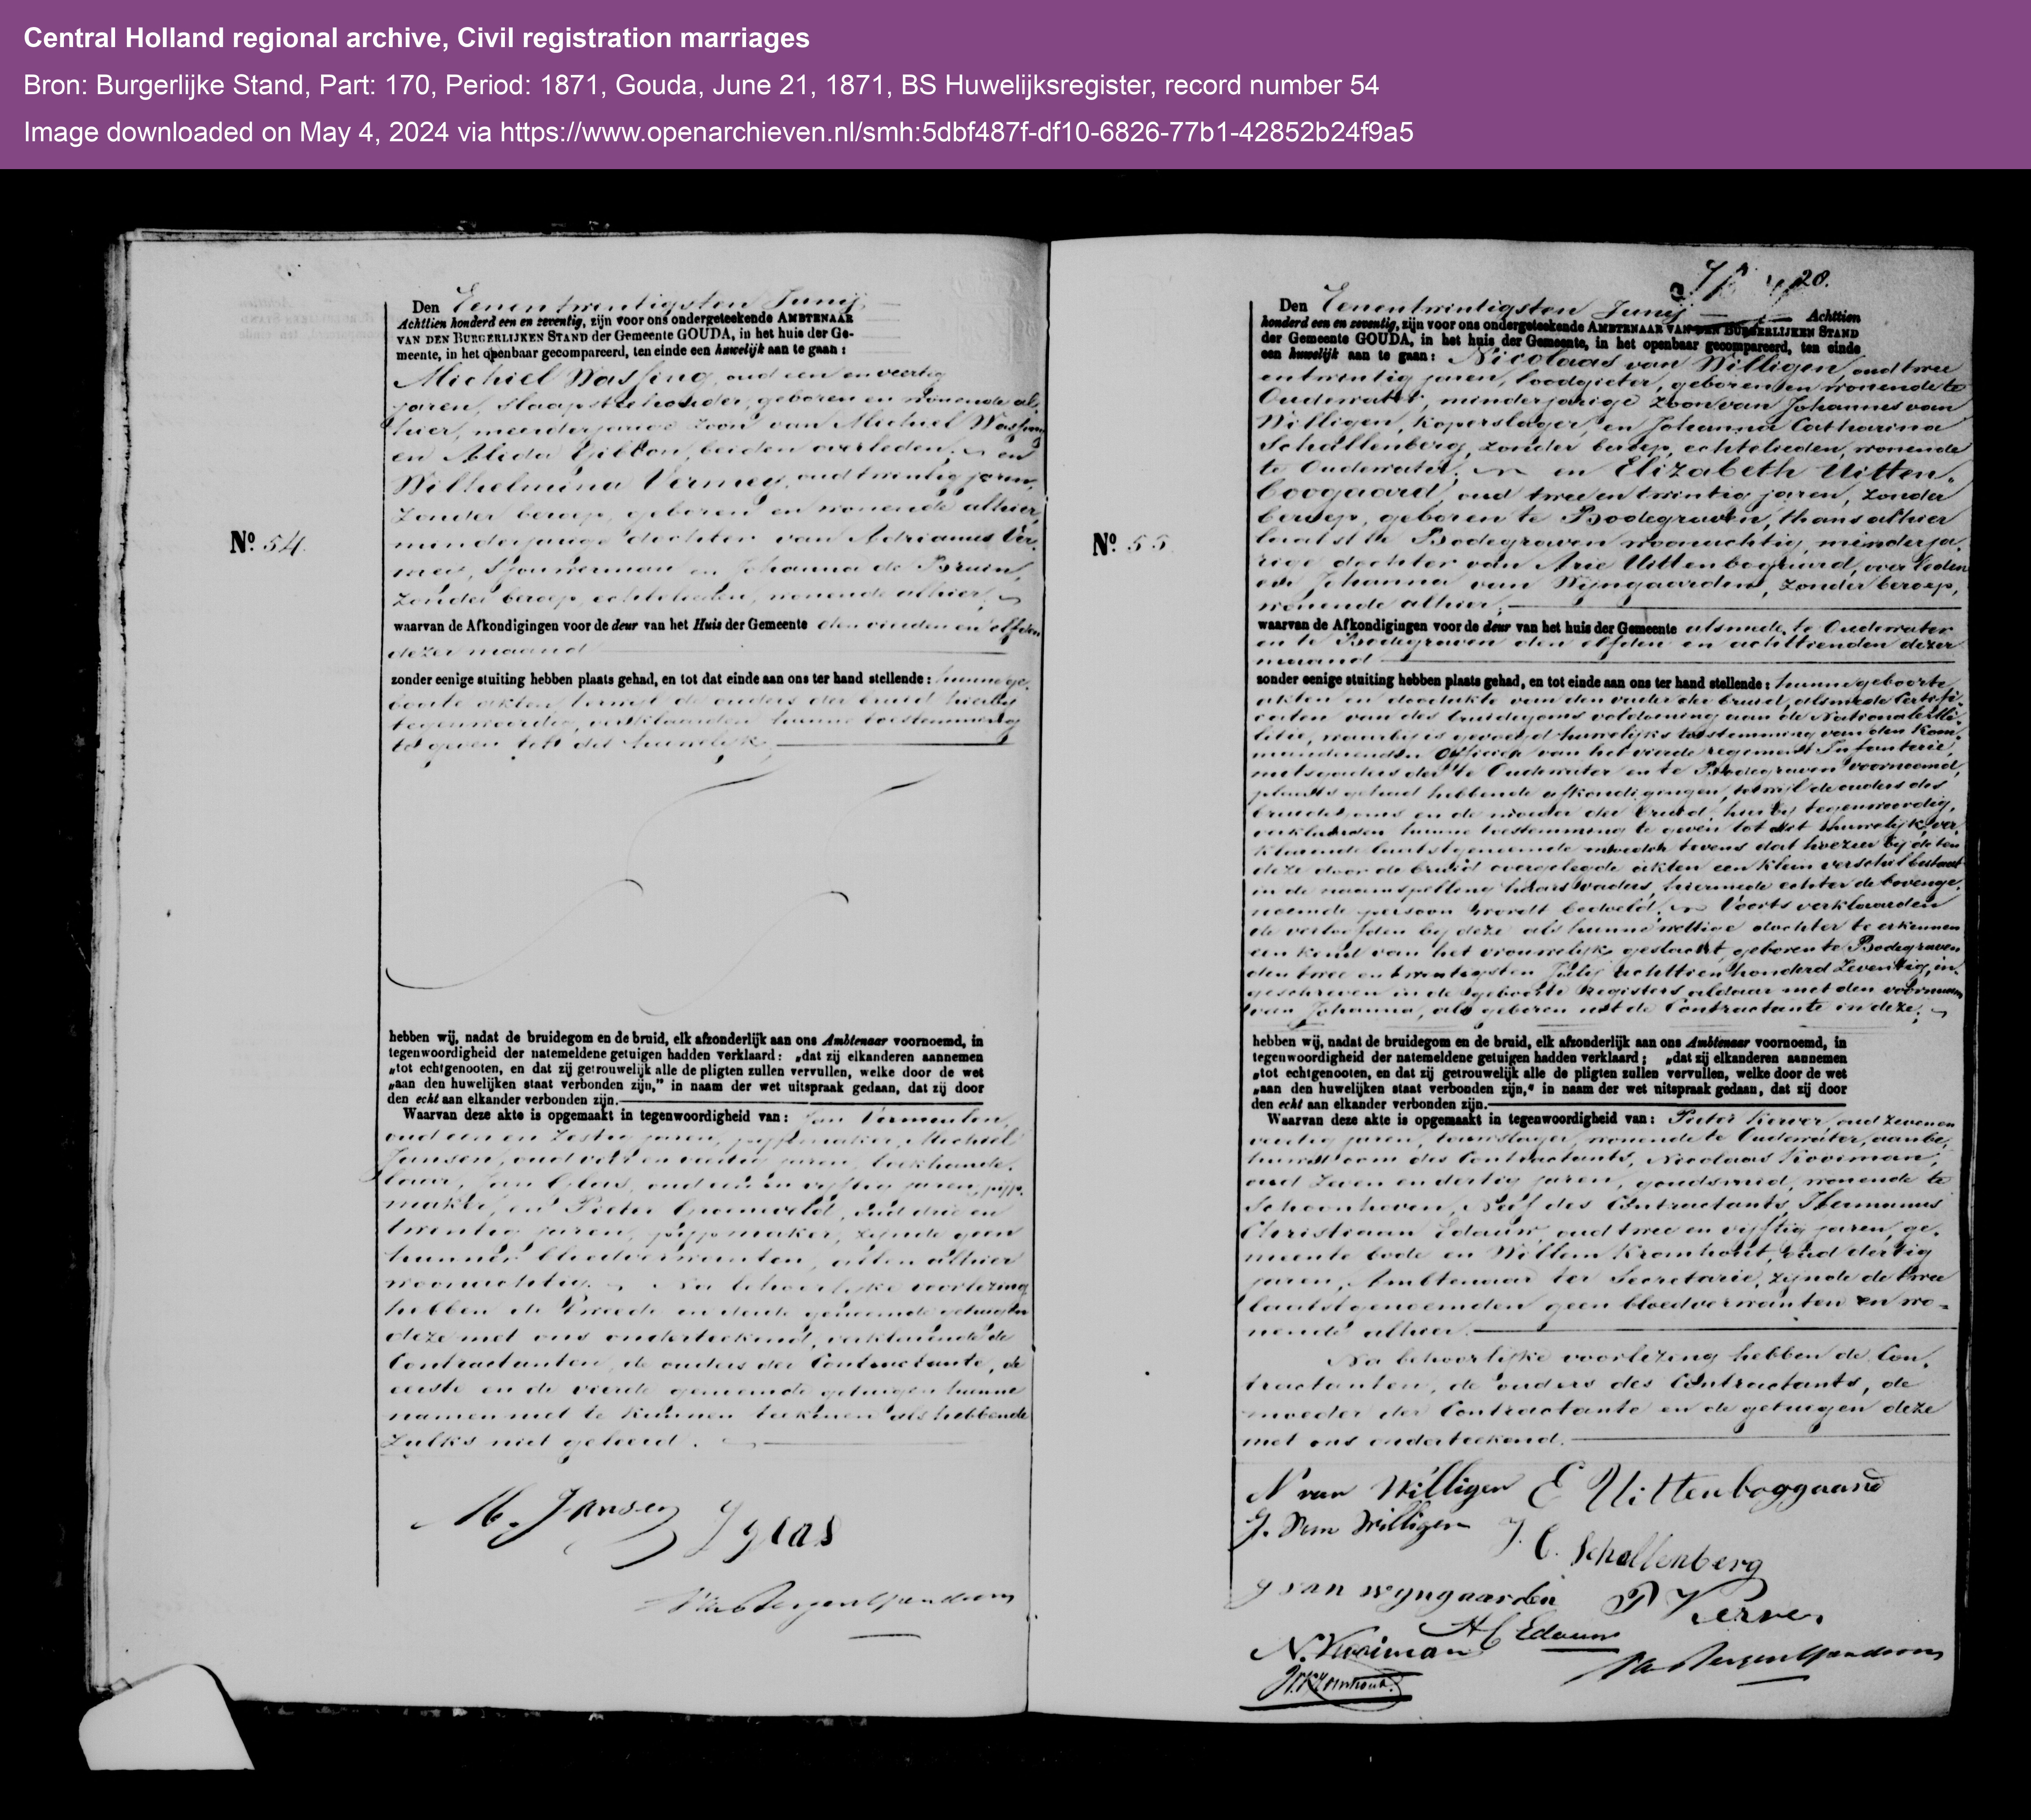 Central Holland regional archive, Civil registration marriages
Bron: Burgerlijke Stand, Part: 170, Period: 1871, Gouda, June 21, 1871, BS Huwelijksregister, record number 54
Image downloaded on May 4, 2024 via https://www.openarchieven.nl/smh:5dbf487f-df10-6826-77b1-42852b24f9a5
Den Eenentwintigsten Junij
Achttien honderd een en zeventig, zijn voor ons ondergeteekende AMBTENAAR
VAN DEN BURGERLIJKEN STAND der Gemeente GOUDA, in het huis der Ge-
meente, in het openbaar gecompareerd, ten einde een huwelijk aan te gaan:
Michiel Wassing, oud een en veertig
jaren, slaapsteehouder, geboren en wonende al-
hier, meerderjarige zoon van Michiel Wassing
en Alida Gibbon, beiden overleden; en
Wilhelmina Vermey, oud twintig jaren,
zonder beroep, geboren en wonende alhier,
minderjarige dochter van Adrianus Ver-
mey, sjouwerman en Johanna de Bruin,
zonder beroep, echtelieden, wonende alhier;
No. 54.
waarvan de Afkondigingen voor de deur van het Huis der Gemeente den vierden en elfden
dezer maand
zonder eenige stuiting hebben plaats gehad, en tot dat einde aan ons ter hand stellende: hunne ge-
boorte akten, terwijl de ouders der bruid hierbij
tegenwoordig, verklaarden hunne toestemming
te geven tot dit huwelijk,
hebben wij, nadat de bruidegom en de bruid, elk afzonderlijk aan ons Ambtenaar voornoemd, in
tegenwoordigheid der natemeldene getuigen hadden verklaard: „dat zij elkanderen aannemen
„tot echtgenooten, en dat zij getrouwelijk alle de pligten zullen vervullen, welke door de wet
„aan den huwelijken staat verbonden zijn,” in naam der wet uitspraak gedaan, dat zij door
den echt aan elkander verbonden zijn.
Waarvan deze akte is opgemaakt in tegenwoordigheid van: Jan Vermeulen,
oud een en zestig jaren, pijpmaker, Michiel
Jansen, oud vier en veertig jaren, boekhande-
laar, Jan Glas, oud een en vijftig jaren, pijp-
maker, en Pieter Groeneveld, oud drie en
twintig jaren, pijpmaker, zijnde geen
hunner bloedverwanten, allen alhier
woonachtig. Na behoorlijke voorlezing
hebben de tweede en derde genoemde getuigen
deze met ons onderteekend, verklarende de
Contractanten, de ouders der Contractante, de
eerste en de vierde genoemde getuigen hunne
namen niet te kunnen teekenen als hebbende
zulks niet geleerd.
M. Jansen J glas
van Bergen IJzendoorn
28.
Den Eenentwintigsten Junij Achttien
honderd een en zeventig, zijn voor ons ondergeteekende AMBTENAAR VAN DEN BURGERLIJKEN STAND
der Gemeente GOUDA, in het huis der Gemeente, in het openbaar gecompareerd, ten einde
een huwelijk aan te gaan: Nicolaas van Willigen, oud twee
en twintig jaren, loodgieter, geboren en wonende te
Oudewater, minderjarige zoon van Johannes van
Willigen, koperslager, en Johanna Catharina
Schallenberg, zonder beroep, echtelieden, wonende
te Oudewater; en Elizabeth Uitten-
boogaard, oud twee en twintig jaren, zonder
beroep, geboren te Bodegraven, thans alhier
laatst te Bodegraven woonachtig, minderja-
rige dochter van Arie Uittenbogaard, overleden
en Johanna van Wijngaarden, zonder beroep,
wonende alhier;
No. 55.
waarvan de Afkondigingen voor de deur van het huis der Gemeente alsmede te Oudewater
en te Bodegraven den elfden en achttienden dezer
maand
zonder eenige stuiting hebben plaats gehad, en tot einde aan ons ter hand stellende: hunne geboorte
akten en doodakte van den vader der bruid, alsmede Certifi-
caten van des bruidegoms voldoening aan de Nationale Mi-
litie, waarbij is gevoegd huwelijks toestemming van den Kom-
manderenden Officier van het vierde regement Infanterie,
mitsgaders der te Oudewater en te Bodegraven voornoemd,
plaats gehad hebbende afkondigingen, terwijl de ouders des
bruidegoms en de moeder der bruid, hierbij tegenwoordig,
verklaarden hunne toestemming te geven tot dit huwelijk, ver-
klarende laatstgenoemde moeder tevens dat hoezeer bij de ten
deze door de bruid overgelegde akten een klein verschil bestaat
in de naamspelling haars vaders, hiermede echter de bovenge-
noemde persoon wordt bedoeld. Voorts verklaarden
de verloofden bij deze als hunne wettige dochter te erkennen
een kind van het vrouwelijk geslacht, geboren te Bodegraven
den twee en twintigsten Julij achttien honderd zeventig, in-
geschreven in de geboorte registers aldaar met den voornaam
van Johanna, als geboren uit de Contractante in deze;
hebben wij, nadat de bruidegom en de bruid, elk afzonderlijk aan ons Ambtenaar voornoemd, in
tegenwoordigheid der natemeldene getuigen hadden verklaard; „dat zij elkanderen aannemen
„tot echtgenooten, en dat zij getrouwelijk alle de pligten zullen vervullen, welke door de wet
„aan den huwelijken staat verbonden zijn,“ in naam der wet uitspraak gedaan, dat zij door
den echt aan elkander verbonden zijn.
Waarvan deze akte is opgemaakt in tegenwoordigheid van: Pieter Kerver, oud zeven en
veertig jaren, touwslager, wonende te Oudewater, aanbe-
huwd oom des Contractants, Nicolaas Kooiman,
oud zeven en dertig jaren, goudsmid, wonende te
Schoonhoven, Neef des Contractants, Hermanus
Christiaan Edauw, oud twee en vijftig jaren, ge-
meente bode en Willem Kromhout, oud dertig
jaren, Ambtenaar ter Secretarie, zijnde de twee
laatstgenoemden geen bloedverwanten en wo-
nende alhier.
Na behoorlijke voorlezing hebben de Con-
tractanten, de ouders des Contractants, de
moeder der Contractante en de getuigen deze
met ons onderteekend.
N van Willigen E Uittenboggaard
J. van Willigen J. C. Schallenberg
J van wyngaarden P Kerver
N. Kooiman H C Edauw
W. Kromhout. van Bergen IJzendoorn